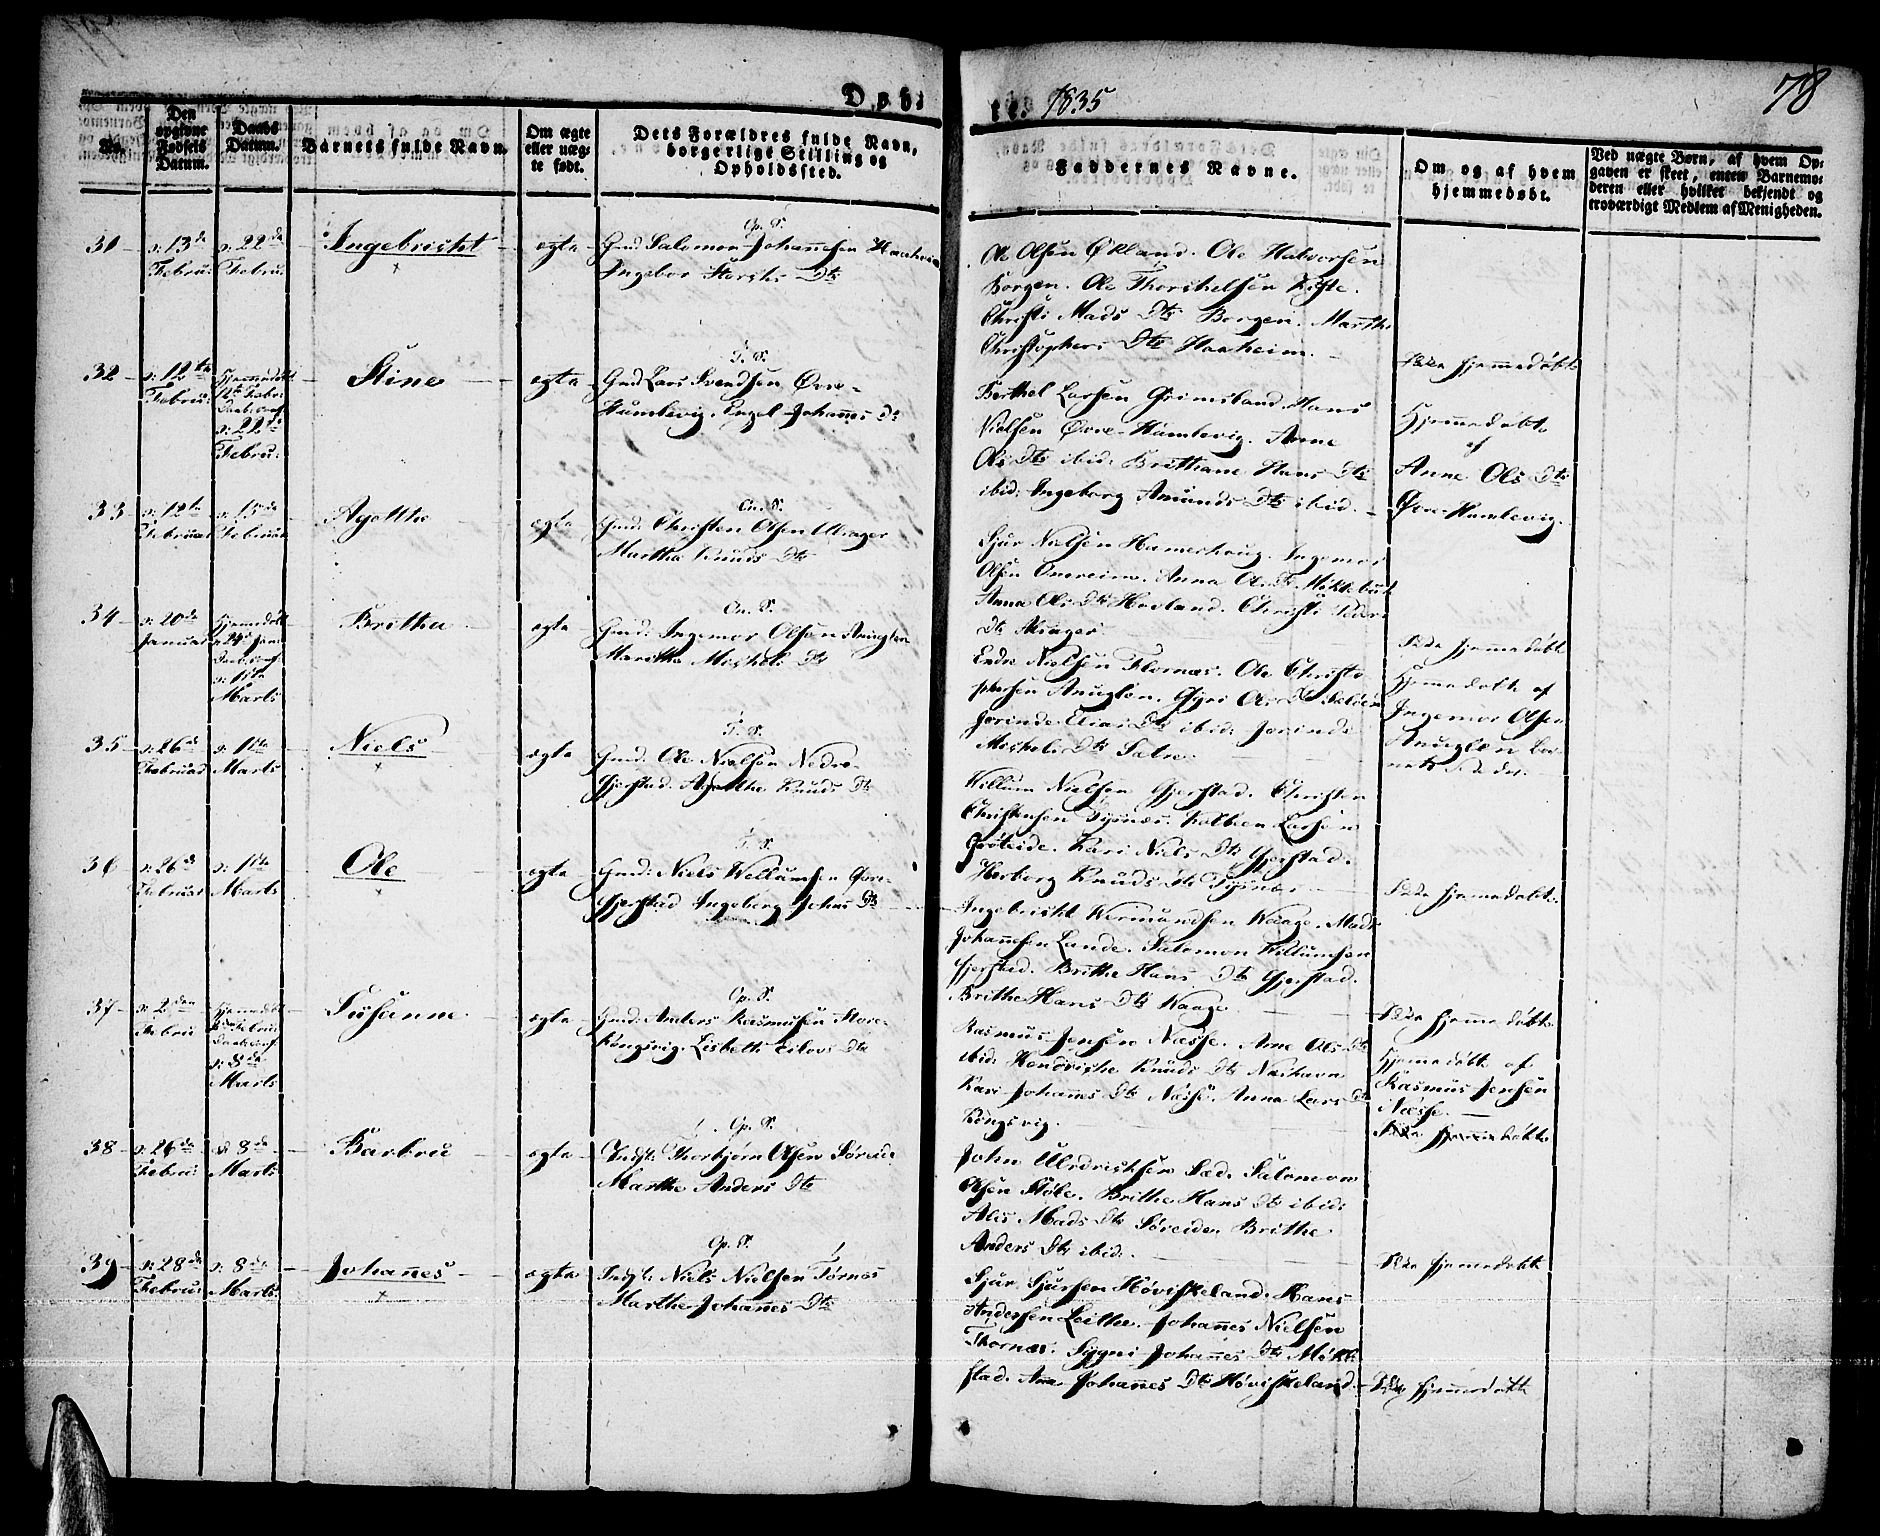 Døbte 1835
78
No.
Den opgivne Fødsels Datum.
Daabs Datum.
Barnets fulde Navn.
Om ægte eller uægte født.
Dets Forældres fulde Navn, borgerlige Stilling og Opholdssted.
Faddernes Navne.
Om og af hvem hjemmedøbt.
Ved uægte Børn, af hvem Opgaven er skeet, enten Barnemoderen eller hvilket bekjendt og troværdigt Medlem af Menigheden.
31
d: 13de Febru:
d: 22de Febru:
Ingebricht
ægte
Op. S.
Gmd: Salomon Johannesen
Ingebor Dtr
Ole Olsen Økland. Ole Halvorsen
Borgen. Ole Thorchelsen
Christi Mads Dtr Borgen. Marthe
Christophers Dtr Haaheim.
Ikke hjemmedøbt
32
d: 12te Febru:
Hjemmedøbt
12te Febr:
d: 22de
Febru:
Stine
ægte
T. S.
Gmd: Lars Svendsen Øvre-
Humlevig. Engel Johannes Dtr
Berthel Larsen Grimsland. Hans
Nielsen Øvre-Humlevig. Anne
Ols Dtr ibid: Brithane Hans Dtr
ibid: Ingeborg Amunds Dtr ibid.
Hjemmedøbt
af
Anne Ols Dtr
Øvre Humlevig.
33
d: 12te Februar
d: 15de Februar
Agatha
ægte
On. S.
Gmd: Christen Olsen
Martha Knuds Dtr
Sjur Nielsen Hamerhoug. Ingemor
Olsen Anna Ols Dtr
Anna Ols Dtr Hovland. Christi Peder
Dtr
Ikke hjemmedøbt
34
d: 20de Januar
Hjemmedøbt
24de Jan:
d: 1ste
Marts
Britha
ægte
On. S.
Gmd: Ingemor Olsen Anuglen
Maritha Michels Dtr
Endre Nielsen Flornæs. Ole Christo
phersen Anuglen. Gyri Ols Dtr
Jorinde Elias Dtr ibid: Jorinde
Michels Dtr Sætre.
Hjemmedøbt af
Ingemor Olsen
Anuglen Bar-
nets Fader.
35
d: 26de Februar
d: 1ste Marts
Niels
ægte
T. S.
Gmd: Ole Nielsen Nedre-
Gjerstad. Agathe Knuds Dtr
Willum Nielsen Gjerstad. Christen
Christensen Tysnæs. Larsen
Kari Niels Dtr Gjerstad.
Herborg Knuds Dtr Tysnæs
Ikke hjemmedøbt.
36
d: 26de Februar
d: 1ste Marts
Ole
ægte
T. S.
Gmd: Niels Willumsen Øvre-
Gjerstad Ingeborg Johns Dtr
Ingebricht Wermundsen Waage. Mads
Johannesen Lande. Salomon Willumsen
Gjerstad. Brithe Hans Dtr Gjerstad.
Brithe Hans Dtr Waage.
Ikke hjemmedøbt.
37
d: 2den Febru
Hjemmedøbt
Febru:
d: 8de
Marts
Susanne
ægte
Op. S.
Gmd: Anders Rasmusen Store-
Kongsvig. Lisbeth Eilovs Dtr
Rasmus Jensen Næsse. Anne Ols Dtr
ibid: Hendriche Knuds Dtr
Kari Johannes Dtr Næsse. Anna Lars Dtr
Kongsvig.
Hjemmedøbt af
Rasmus Jensen
Næsse.
Ikke hjemmedøbt
38
d: 26de Febru:
d: 8de Marts
Barbru
ægte
Op. S.
Indst: Thorbjørn Olsen Søreide
Marthe Anders Dtr
John Ulrichsen Sæd. Salomon
Olsen Støle. Brithe Hans Dtr ibid:
Alis Mads Dtr Søreide. Brithe
Anders Dtr ibid:
Ikke hjemmedøbt
39
d: 28de Febru:
d: 8de Marts
Johannes
ægte
Op. S.
Indst: Niels Nielsen Tornæs
Marthe Johannes Dtr
Sjur Sjursen Høviskeland. Hans
Andersen Leithe. Johannes Nielsen
Thornæs. Sygni Johannes Dtr
stad. Ana Johannes Dtr Høviskeland.
Ikke hjemmedøbt